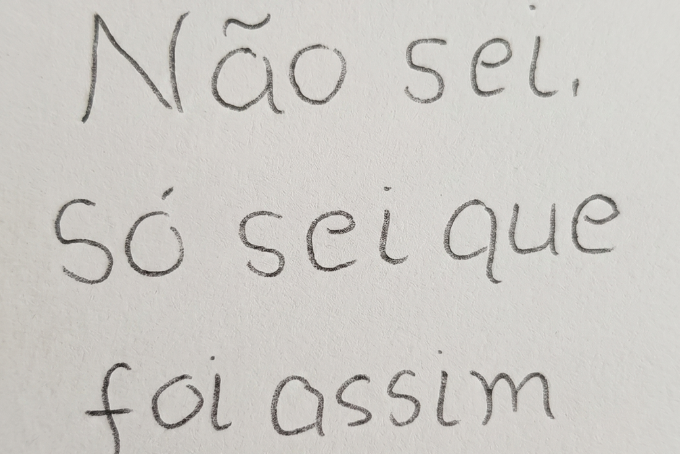 Não sei.
Só sei que
foi assim